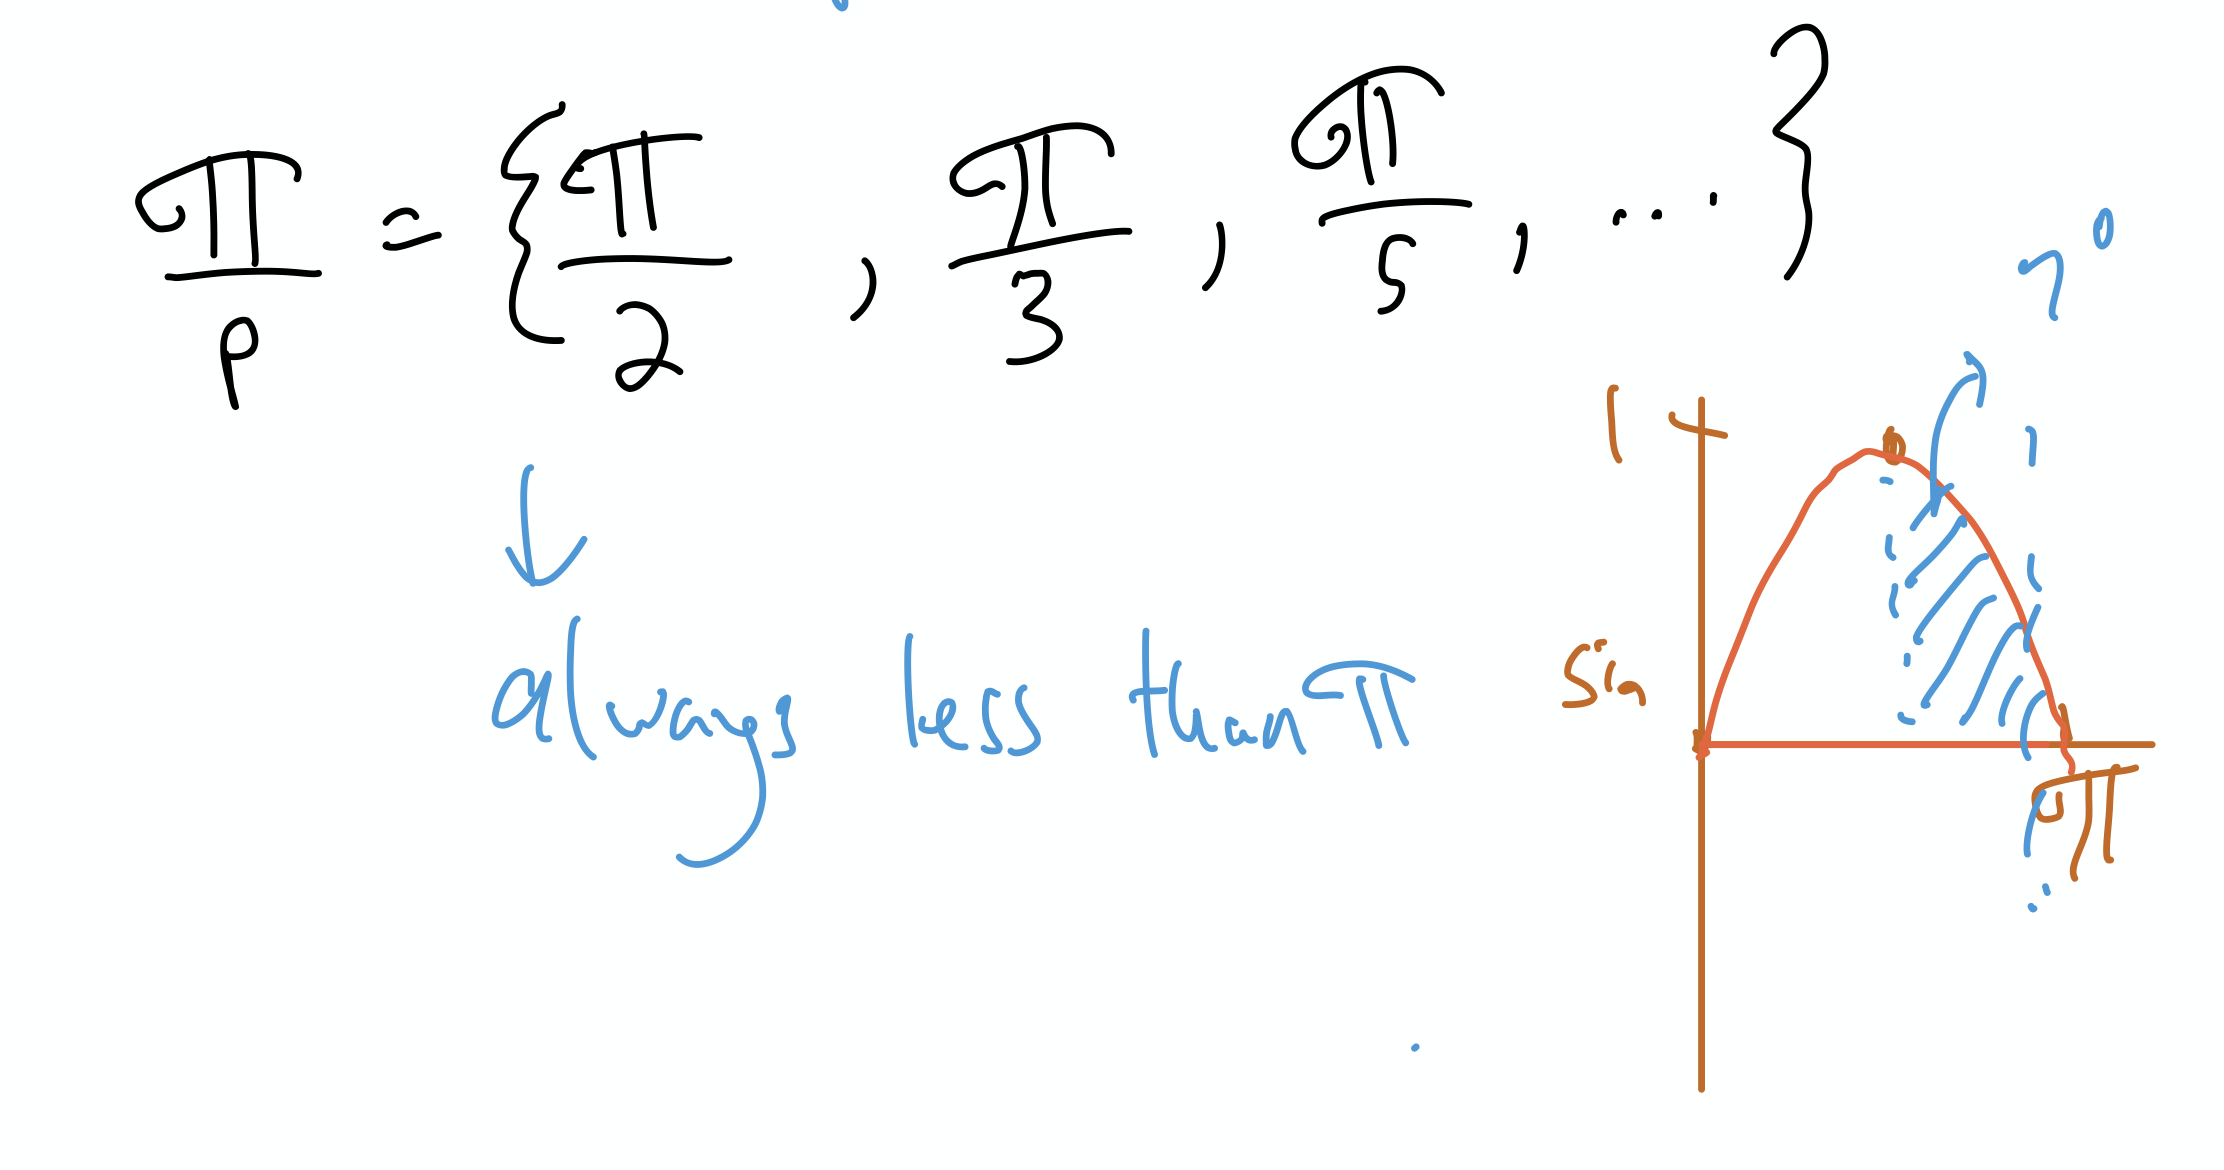 π/p = {π/2, π/3, π/5, ...}
always less than π
1
sin
π